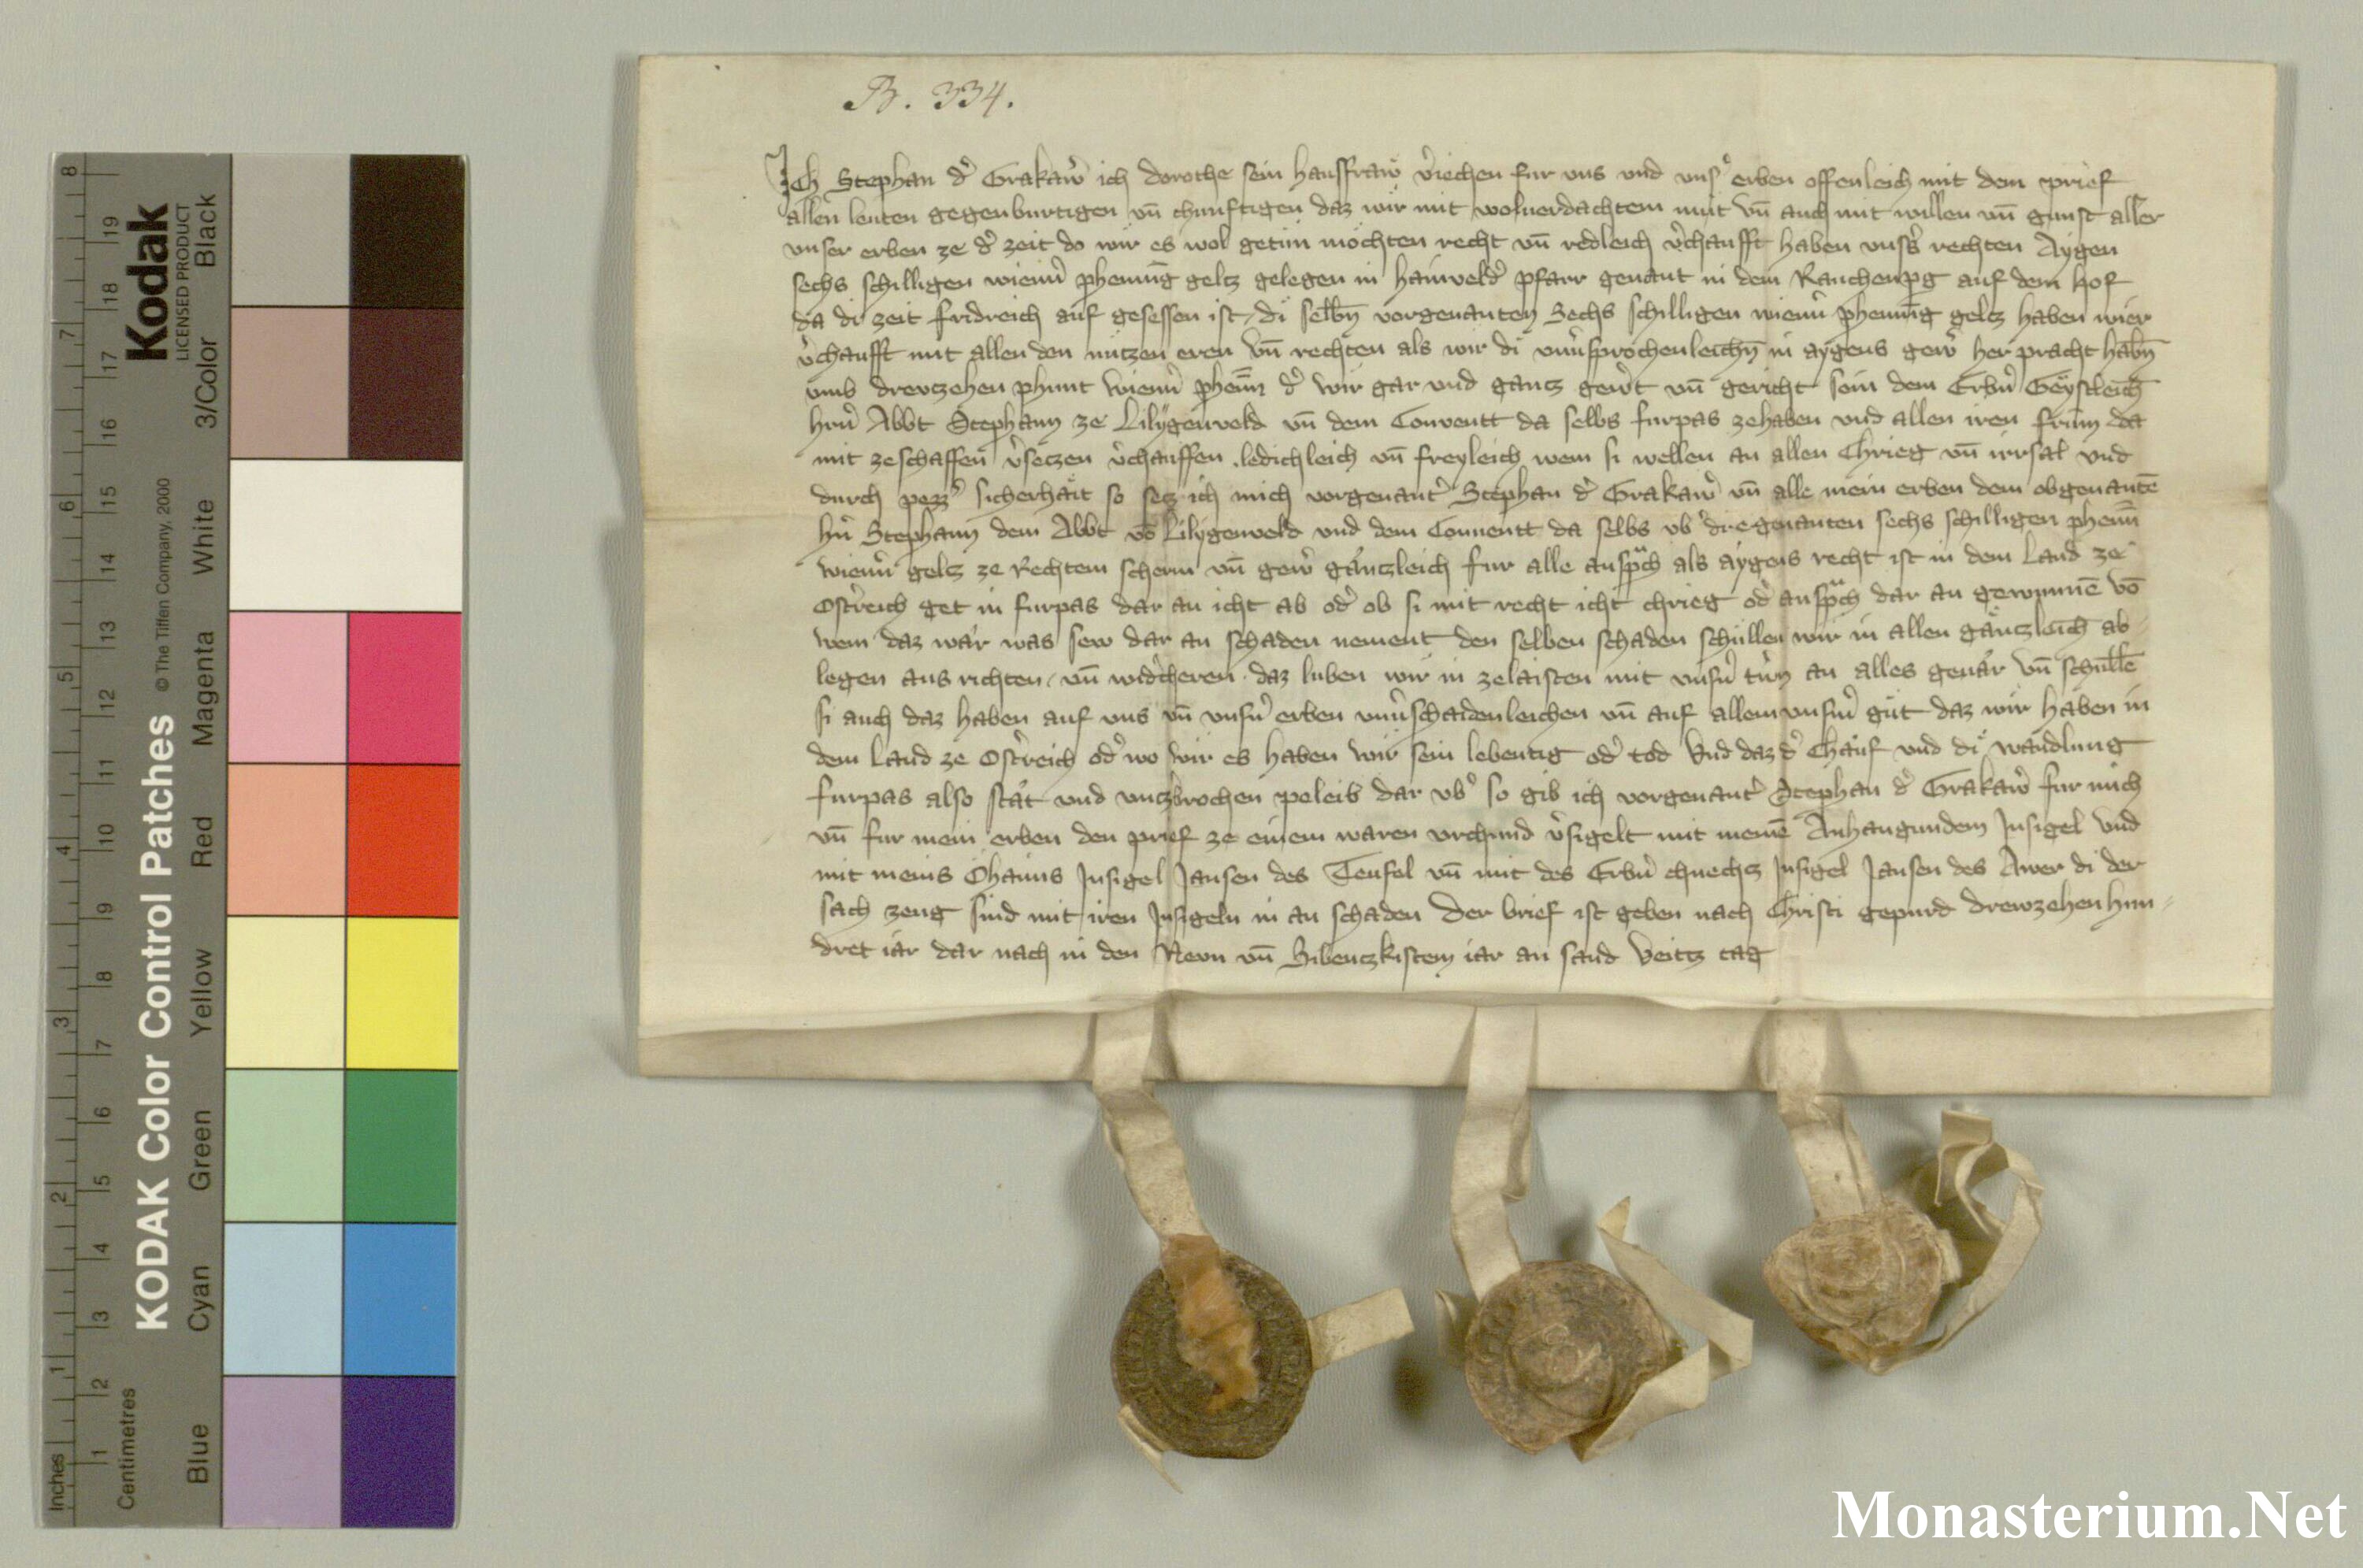 B. 334.
Ich Stephan d' Grakaw' ich dorothe sein hausfraw v'iechen fur vns vnd vns' erben offenleich mit dem prief
allen leuten gegenburtigen vn̄ chunftigen daz wir mit wolverdachtem mut vn̄ auch mit willen vn̄ gunst aller
vnser erben ze d' zeit do wir es wol getun mochten recht vn̄ redleich v'chaufft haben vnss' rechten Aygen
sechs schilligen wienn' phennig geltz gelegen in hainveld' pfarr genant in dem Rauchenpg auf dem hof
da di zeit fridreich auf gesessen ist di selbn̄ vorgenanten Sechs schilligen wienn' phenīg geltz haben wier
v'chaufft mit allen den nutzen eren vn̄ rechten als wir di vnv'sprochenleichn̄ in aygens gew' her pracht habn̄
vmb drevczehen phunt wienn' phenn̄ d' wir gar vnd gancz gew't vn̄ gericht sein dem Erbn' Geystleich̄
hrn' Abbt Stephann ze Lilygenveld vn̄ dem Conventt da selbs furpas zehaben vnd allen iren frūm da
mit zeschaffen v'seczen v'chauffen ledichleich vn̄ freyleich wem si wellen an allen Chrieg vn̄ irrsal vnd
durch pezz' sicherhait so secz ich mich vorgenant' Stephan d' Grakaw' vn̄ alle mein erben dem obgenantē
hn' Stephann dem Abbt vō Lilygenveld vnd dem Conuentt da selbs vb' dre genanten sechs schilligen phenn̄
wienn' geltz ze Rechtem scherm vn̄ gew' gänczleich fur alle ansprach als aygens recht ist in dem Land ze
Ost'reich get in furpas dar an icht ab od' ob si mit recht icht chrieg od' ansprach dar an gewunnē vō
wem daz wär was sew dar an schaden nement den selben schaden schullen wir in allen gänczleich̄ ab
legen aus richten vn̄ wid'cheren daz luben wir in zelaisten mit vnsn' tr'wn an alles geuär vn̄ schullē
si auch daz haben auf vns vn̄ vnsn' erben vnv'schaidenleichen vn̄ auf allem vnsm' güt daz wir haben in
dem Land ze Ost'reich od' wo wir es haben wir sein lebentig od' tod Vnd daz d' Chauf vnd di wandlung
furpas also stät vnd vnczbrochen peleib dar vb' so gib ich vorgenant' Stephan d' Grakaw' fur mich
vn̄ fur mein erben den prief ze einem waren vrchund v'sigelt mit meinē Anhangundem Insigel vnd
mit meins Ohaims Insigel Jansen des Teufel vn̄ mit des Erbn' chnechcz Insigel Jansen des Awer di der
sach zeug sind mit iren Insigeln in an schaden Der brief ist geben nach Christi gepurd drewzehen hun=
dret iar dar nach in den Newn vn̄ Sibenczkistem iar an sand Veitz tag
Kodak
LICENSED PRODUCT
KODAK Color Control Patches
© The Tiffen Company, 2000
Black
3/Color
White
Magenta
Red
Yellow
Green
Cyan
Blue
Inches
1 2 3 4 5 6 7 8
Centimetres
1 2 3 4 5 6 7 8 9 10 11 12 13 14 15 16 17 18 19
Monasterium.Net